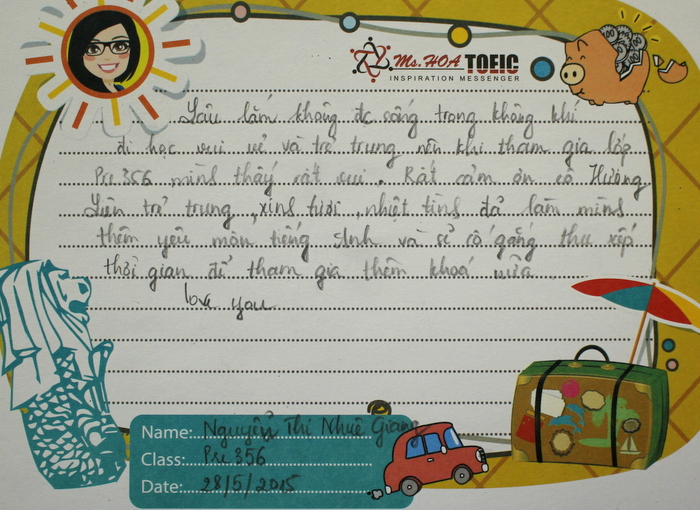 Ms. HOA TOEIC
INSPIRATION MESSENGER
Lâu lắm không đc sống trong không khí
đi học vui vẻ và trẻ trung nên khi tham gia lớp
Pre 356 mình thấy rất vui. Rất cảm ơn cô Hường
Liên trẻ trung, xinh tươi, nhiệt tình đã làm mình
thêm yêu môn tiếng Anh và sẽ cố gắng thu xếp
thời gian để tham gia thêm khoá nữa
love you
Name: Nguyễn Thị Nhuệ Giang
Class: Pre 356
Date: 28/5/2015